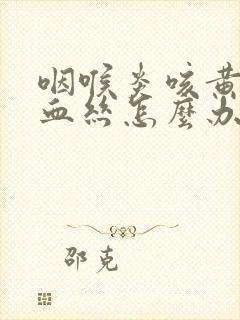 咽喉炎咳黄
血丝怎麽办
邵克